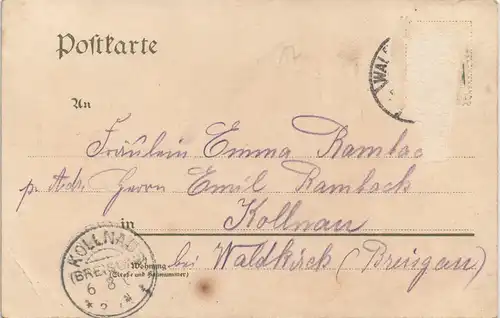 Postkarte
WAL
An
Fräulein Emma Rambac
p. Adr. Herrn Emil Rambach
in Kollnau
bei Waldkirch (Breisgau)
Wohnung
(Straße und Hausnummer)
KOLLNAU
(BREISGAU)
6 8